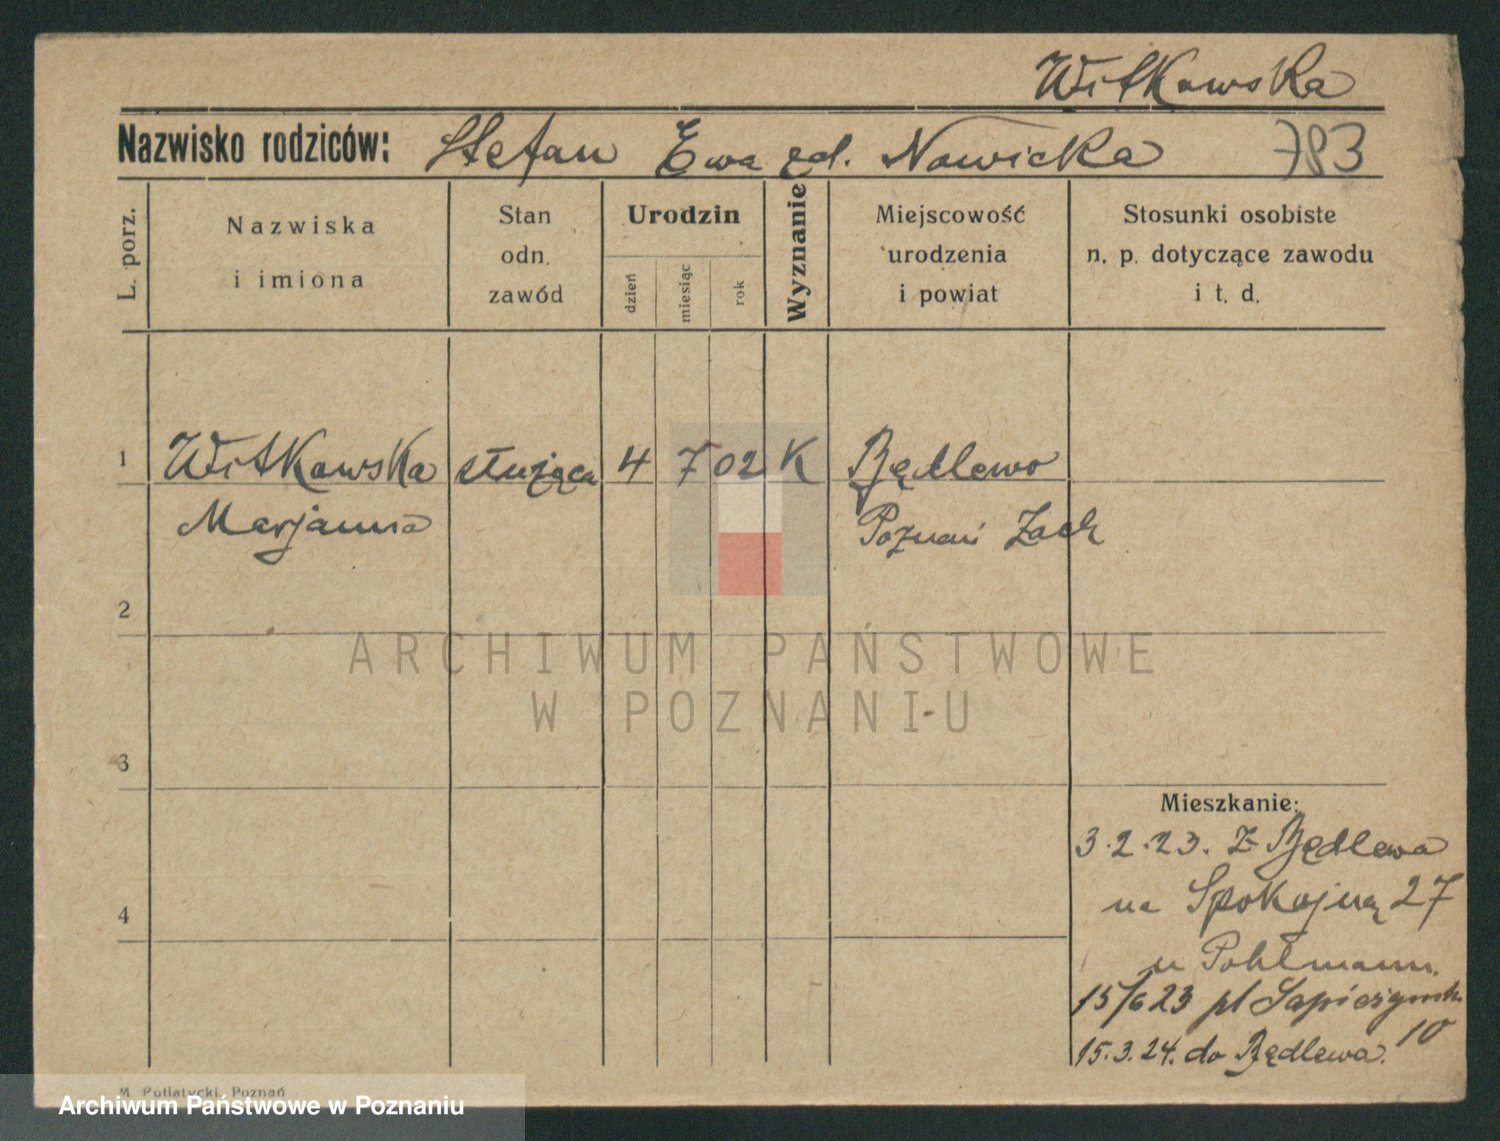 Witkowska
Nazwisko rodziców: Stefan Ewa zd. Nowicka 783
L. porz.
Nazwiska
i imiona
Stan
odn.
zawód
Urodzin
dzień
miesiąc
rok
Wyznanie
Miejscowość
urodzenia
i powiat
Stosunki osobiste
n. p. dotyczące zawodu
i t. d.
1 Witkowska służąca 4 7 02 K Będlewo
Marjanna Poznań Zach
2
ARCHIWUM PAŃSTWOWE
W POZNANIU
3
Mieszkanie:
3.2.23. z Będlewa
na Spokojną 27
4
u Pohlmann.
15/6 23 pl Sapieżynsk.
10
15.3.24. do Będlewa.
M. Putiatycki, Poznań
Archiwum Państwowe w Poznaniu